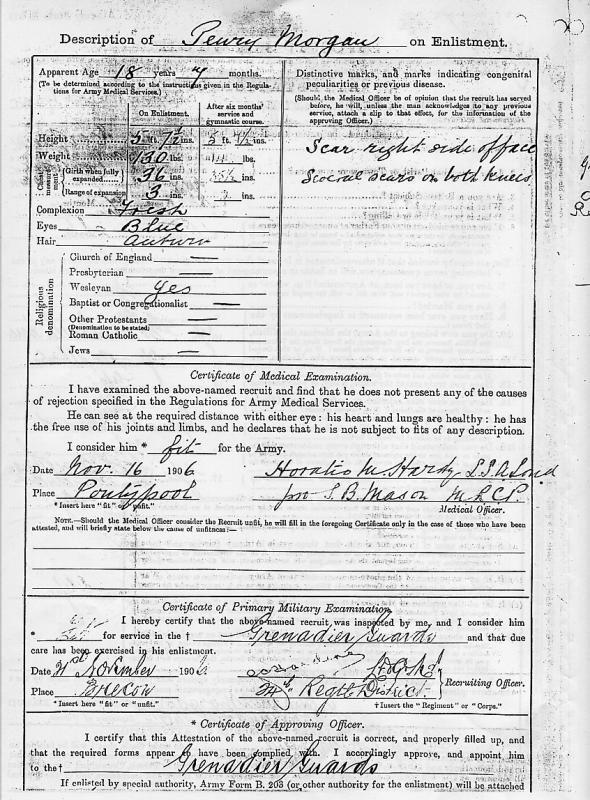 Description of Penry Morgan on Enlistment.
Apparent Age 18 years 7 months.
(To be determined according to the instructions given in the Regulations for Army Medical Services.)
On Enlistment.
After six months' service and gymnastic course.
Height 5 ft. 7½ ins. 5 ft. ins.
Weight 130 lbs. lbs.
Chest measurement
Girth when fully expanded 36 ins. ins.
Range of expansion 3 ins. ins.
Complexion Fresh
Eyes Blue
Hair Auburn
Religious denomination
Church of England —
Presbyterian —
Wesleyan Yes
Baptist or Congregationalist —
Other Protestants —
(Denomination to be stated)
Roman Catholic —
Jews —
Distinctive marks, and marks indicating congenital peculiarities or previous disease.
(Should the Medical Officer be of opinion that the recruit has served before, he will, unless the man acknowledges to any previous service, attach a slip to that effect, for the information of the approving Officer.)
Scar right side of face
Several scars on both knees
Certificate of Medical Examination.
I have examined the above-named recruit and find that he does not present any of the causes
of rejection specified in the Regulations for Army Medical Services.
He can see at the required distance with either eye: his heart and lungs are healthy: he has
the free use of his joints and limbs, and he declares that he is not subject to fits of any description.
I consider him * fit for the Army.
Date Nov. 16 1906 Horatio M Hardy L.S.A Lond
Place Pontypool pro S. B. Mason M.R.C.P.
Medical Officer.
* Insert here "fit" or "unfit."
NOTE.—Should the Medical Officer consider the Recruit unfit, he will fill in the foregoing Certificate only in the case of those who have been
attested, and will briefly state below the cause of unfitness:—
Certificate of Primary Military Examination.
I hereby certify that the above-named recruit was inspected by me, and I consider him
* Fit for service in the † Grenadier Guards and that due
care has been exercised in his enlistment.
Date 21st November 1906
Place Brecon 24th Regtl District. Recruiting Officer.
* Insert here "fit" or "unfit." † Insert the "Regiment" or "Corps."
* Certificate of Approving Officer.
I certify that this Attestation of the above-named recruit is correct, and properly filled up, and
that the required forms appear to have been complied with. I accordingly approve, and appoint him
to the † Grenadier Guards
If enlisted by special authority, Army Form B. 203 (or other authority for the enlistment) will be attached